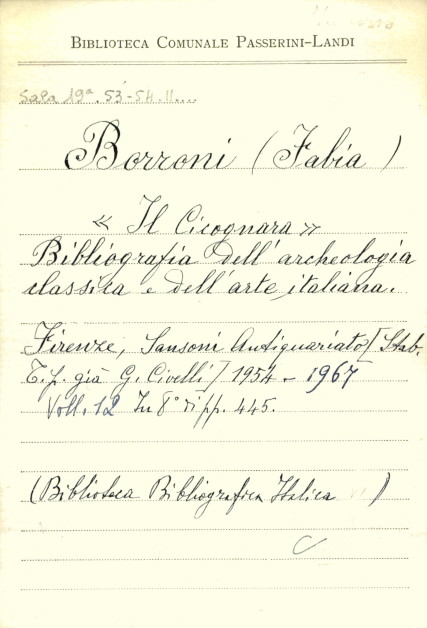 BIBLIOTECA COMUNALE PASSERINI-LANDI
Sala 19ª. 53-54. II....
Borroni (Fabia)
« Il Cicognara »
Bibliografia dell'archeologia
classica e dell'arte italiana.
Firenze, Sansoni Antiquariato [Stab.
T.L. già G. Civelli] 1954 - 1967
Voll. 12 In 8° di pp. 445.
(Biblioteca Bibliografica Italica )